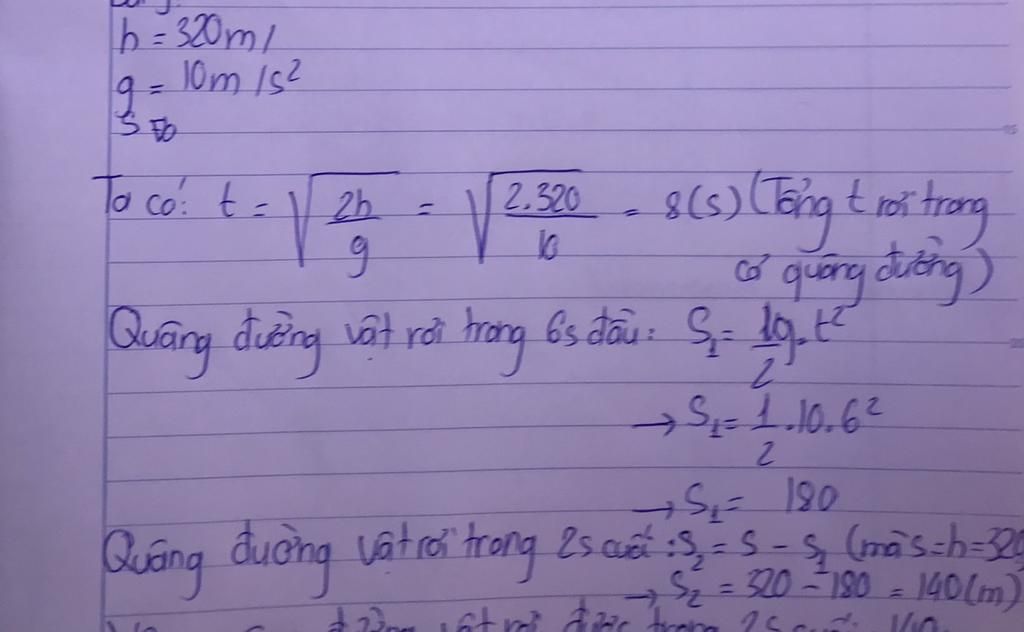 h = 320m/
g = 10m/s²
S
Ta có: t = √(2h/g) = √(2.320/10) = 8(s) (Tổng t rơi trong
cả quãng đường)
Quãng đường vật rơi trong 6s đầu: S₁ = 1/2 g.t²
→ S₁ = 1/2 .10.6²
→ S₁ = 180
Quãng đường vật rơi trong 2s cuối: S₂ = S - S₁ (mà S=h=320
→ S₂ = 320 - 180 = 140(m)
đường vật rơi được trong 2s cuối